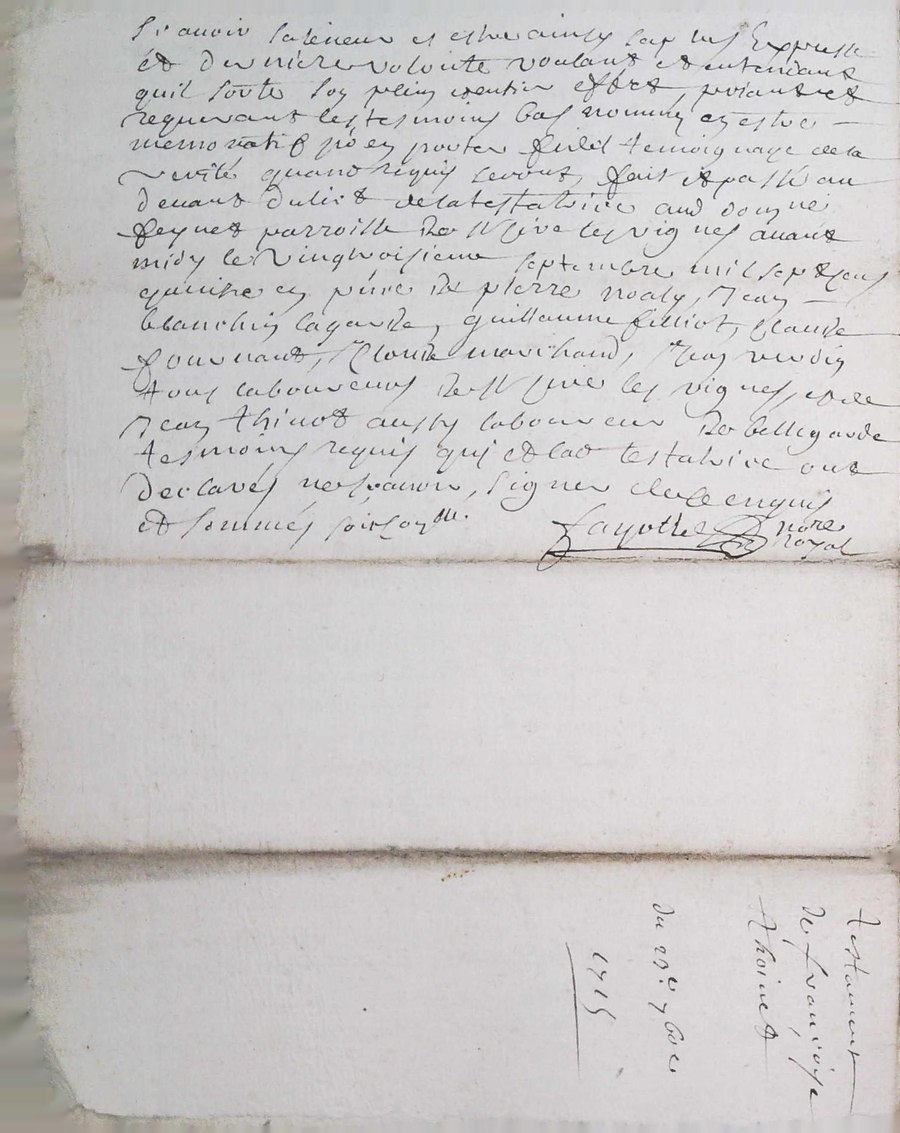 et derniere volonté voulant et entendant
quil sorte son plein et entier effet priant et
requerant les tesmoins bas nommez en estre
memoratif po en porter fidel temoignage de la
verité quand requis seront, fait et passé au
devant du lict de la testatrice au
parroisse de les vignes avant
midy le vingtroisieme septembre mil sept cens
quinze en pñce de pierre noaly, Jean
blanchin lagarde, guillaume filliot, Claude
fournand, Claude marchand, Jean verdin
tous laboureurs de les vignes, et de
Jean thinot aussy laboureur de bellegarde
tesmoins requis qui et lad testatrice ont
declarés ne scavoir signer de ce enquis
et sommés soit
fayolle nore
royal
testament
de françoise
thoinet
du 23e 7bre
1715